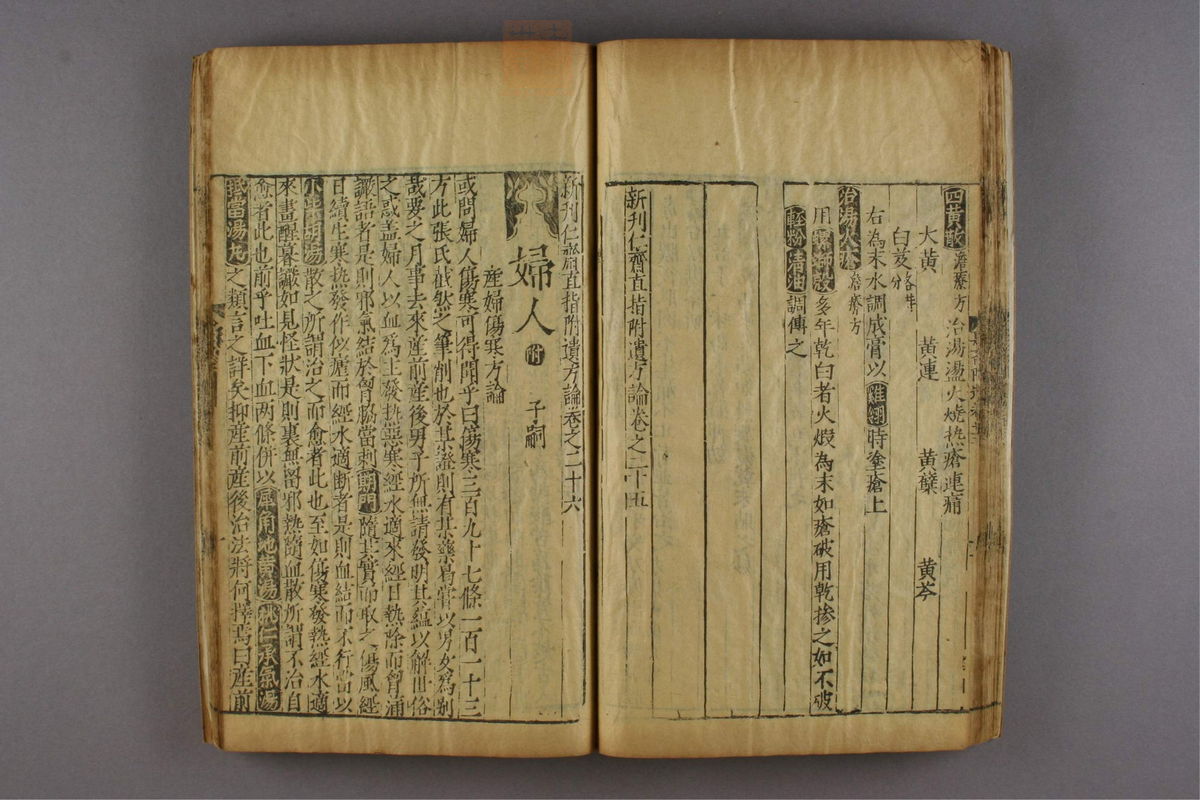 四黃散 澹療方 治湯盪火燒热瘡連痛
大黃 黃連 黃蘗 黃芩
白芨 各等分
右為末水調成膏以雞翎時塗瘡上
治湯火瘡 澹療方
用螺螄殼多年乾白者火煆為末如瘡破用乾摻之如不破
輕粉清油調傅之
新刊仁齋直指附遺方論卷之二十五
新刊仁齋直指附遺方論卷之二十六
婦人 附 子嗣
産婦傷寒方論
或問婦人傷寒可得聞乎曰傷寒三百九十七條一百一十三
方此張氏截然之筆削也於某證則有某藥曷嘗以男女為別
哉要之月事去來産前産後男子所無請發明其蘊以解世俗
之惑盖婦人以血為主發热惡寒經水適來經日熱除而胷滿
譫語者是則邪氣結於胷脇當刺期門隨其實而取之傷風經
日續生寒热發作似瘧而經水適断者是則血結而不行當以
小柴胡湯散之所謂治之而愈者此也至如傷寒發熱經水適
來晝醒暮譫如見怪状是則裏無留邪热隨血散所謂不治自
愈者此也前乎吐血下血两條併以犀角地黄湯桃仁承氣湯
抵當湯丸之類言之詳矣抑産前産後治法將何擇焉曰産前